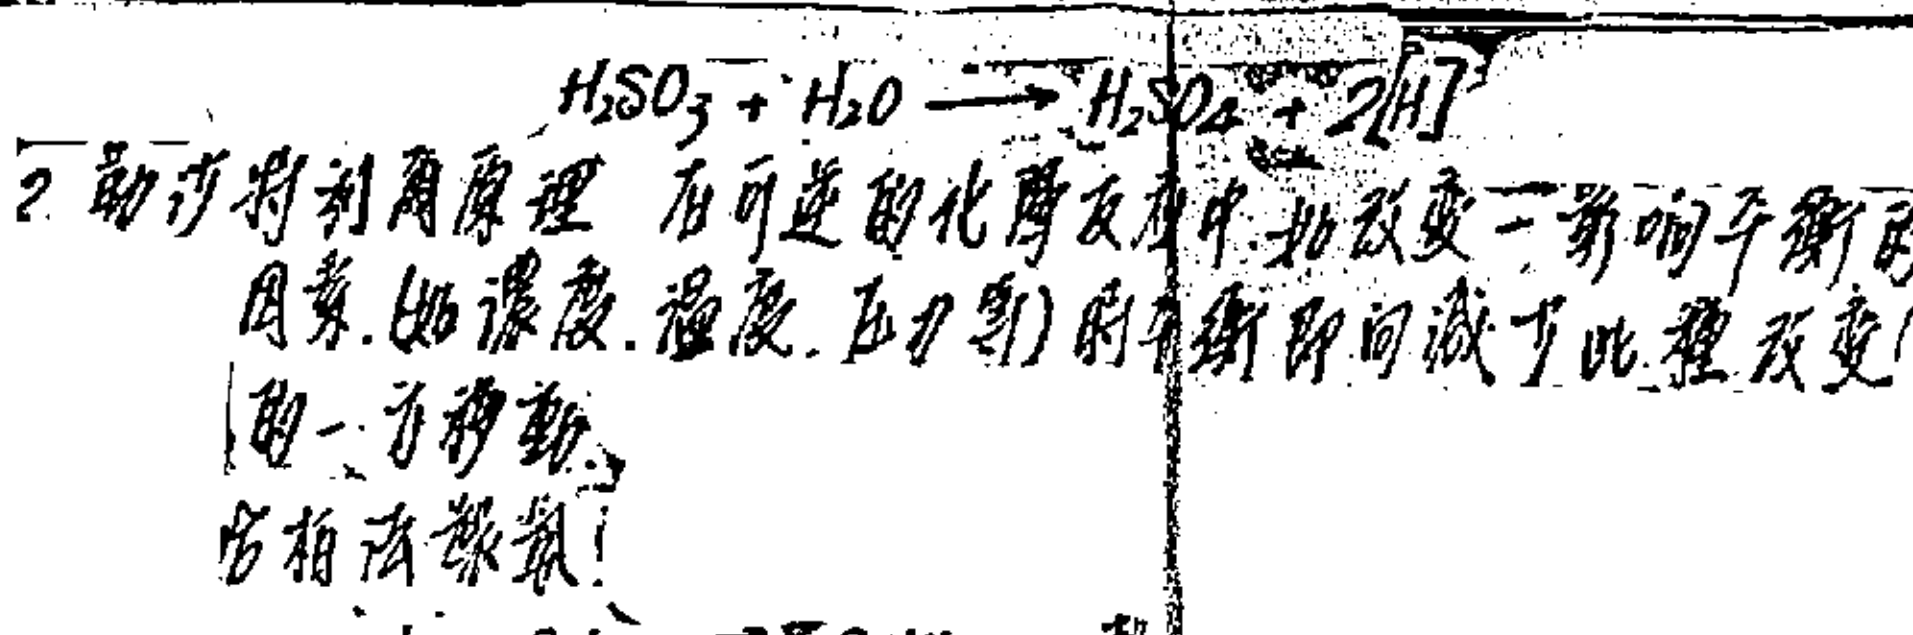 H₂SO₃ + H₂O ⟶ H₂SO₄ + 2[H]
2. 勒沙特利爾原理 在可逆的化學反應中.如改變一影响平衡的
因素.(如濃度.溫度.压力等)時平衡即向減少此種改變
的一方移動
哈柏法製氨